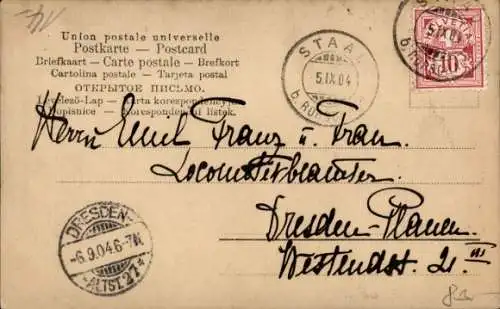 Union postale universelle
Postkarte — Postcard
Briefkaart - Carte postale - Brefkort
Cartolina postale - Tarjeta postal
ОТКРЫТОЕ ПИСЬМО.
Levelező-Lap - Karta korespondencyjna
Dopisnice - Korespondenčni listek.
STAAD
5.IX.04
b. RO
HELVETIA
10
STAAD
5.IX.04
b. RO
Herrn Emil Franz u. Frau
Locomotivbeamter
Dresden-Plauen
Westendst. 21 III
DRESDEN-
-6.9.04.6-7N
ALTST.27*